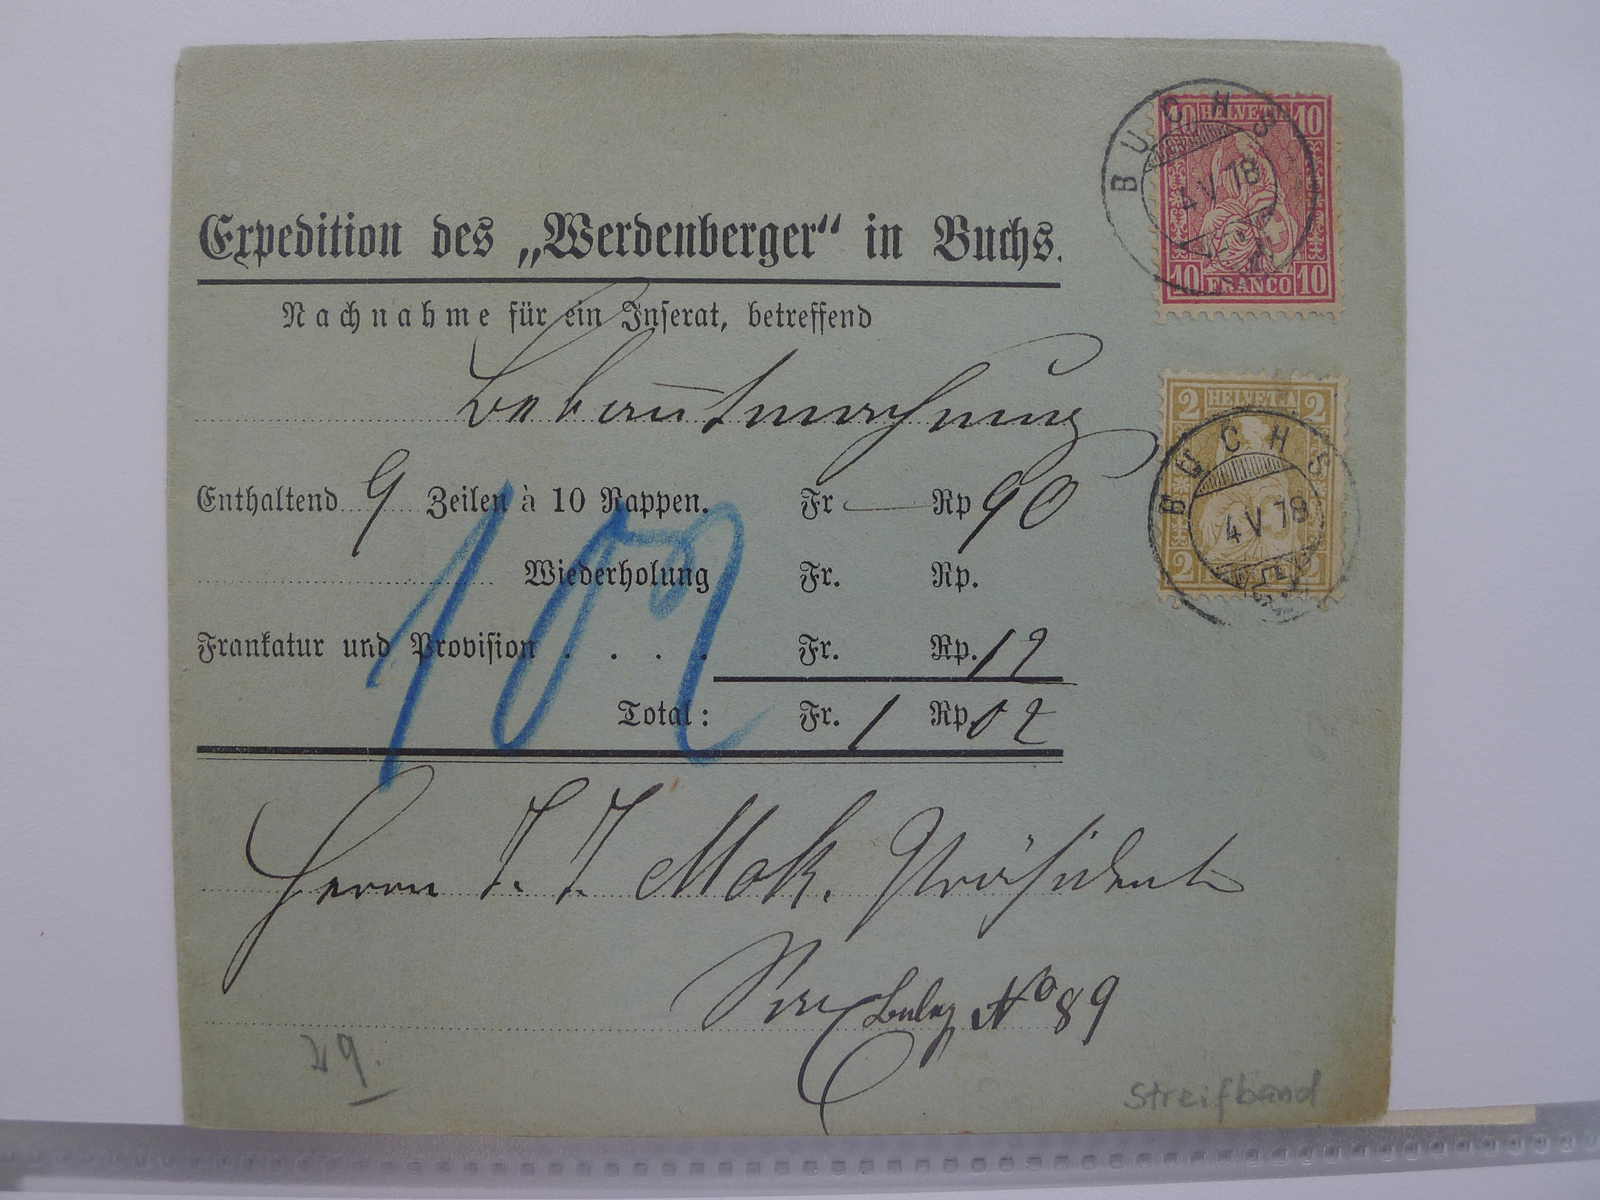 BUCHS
4 V 78
10 HELVETIA 10
10 FRANCO 10
Expedition des „Werdenberger“ in Buchs.
Nachnahme für ein Inserat, betreffend
Bekanntmachung
2 HELVETIA 2
BUCHS
4 V 78
2 2
Enthaltend 9 Zeilen à 10 Rappen. Fr — Rp 90
Wiederholung Fr. Rp.
Frankatur und Provision . . . . Fr. Rp. 12
Total: Fr. 1 Rp. 02
102
Herrn J. J. Mok. Präsident
Beleg No 89
29.
Streifband